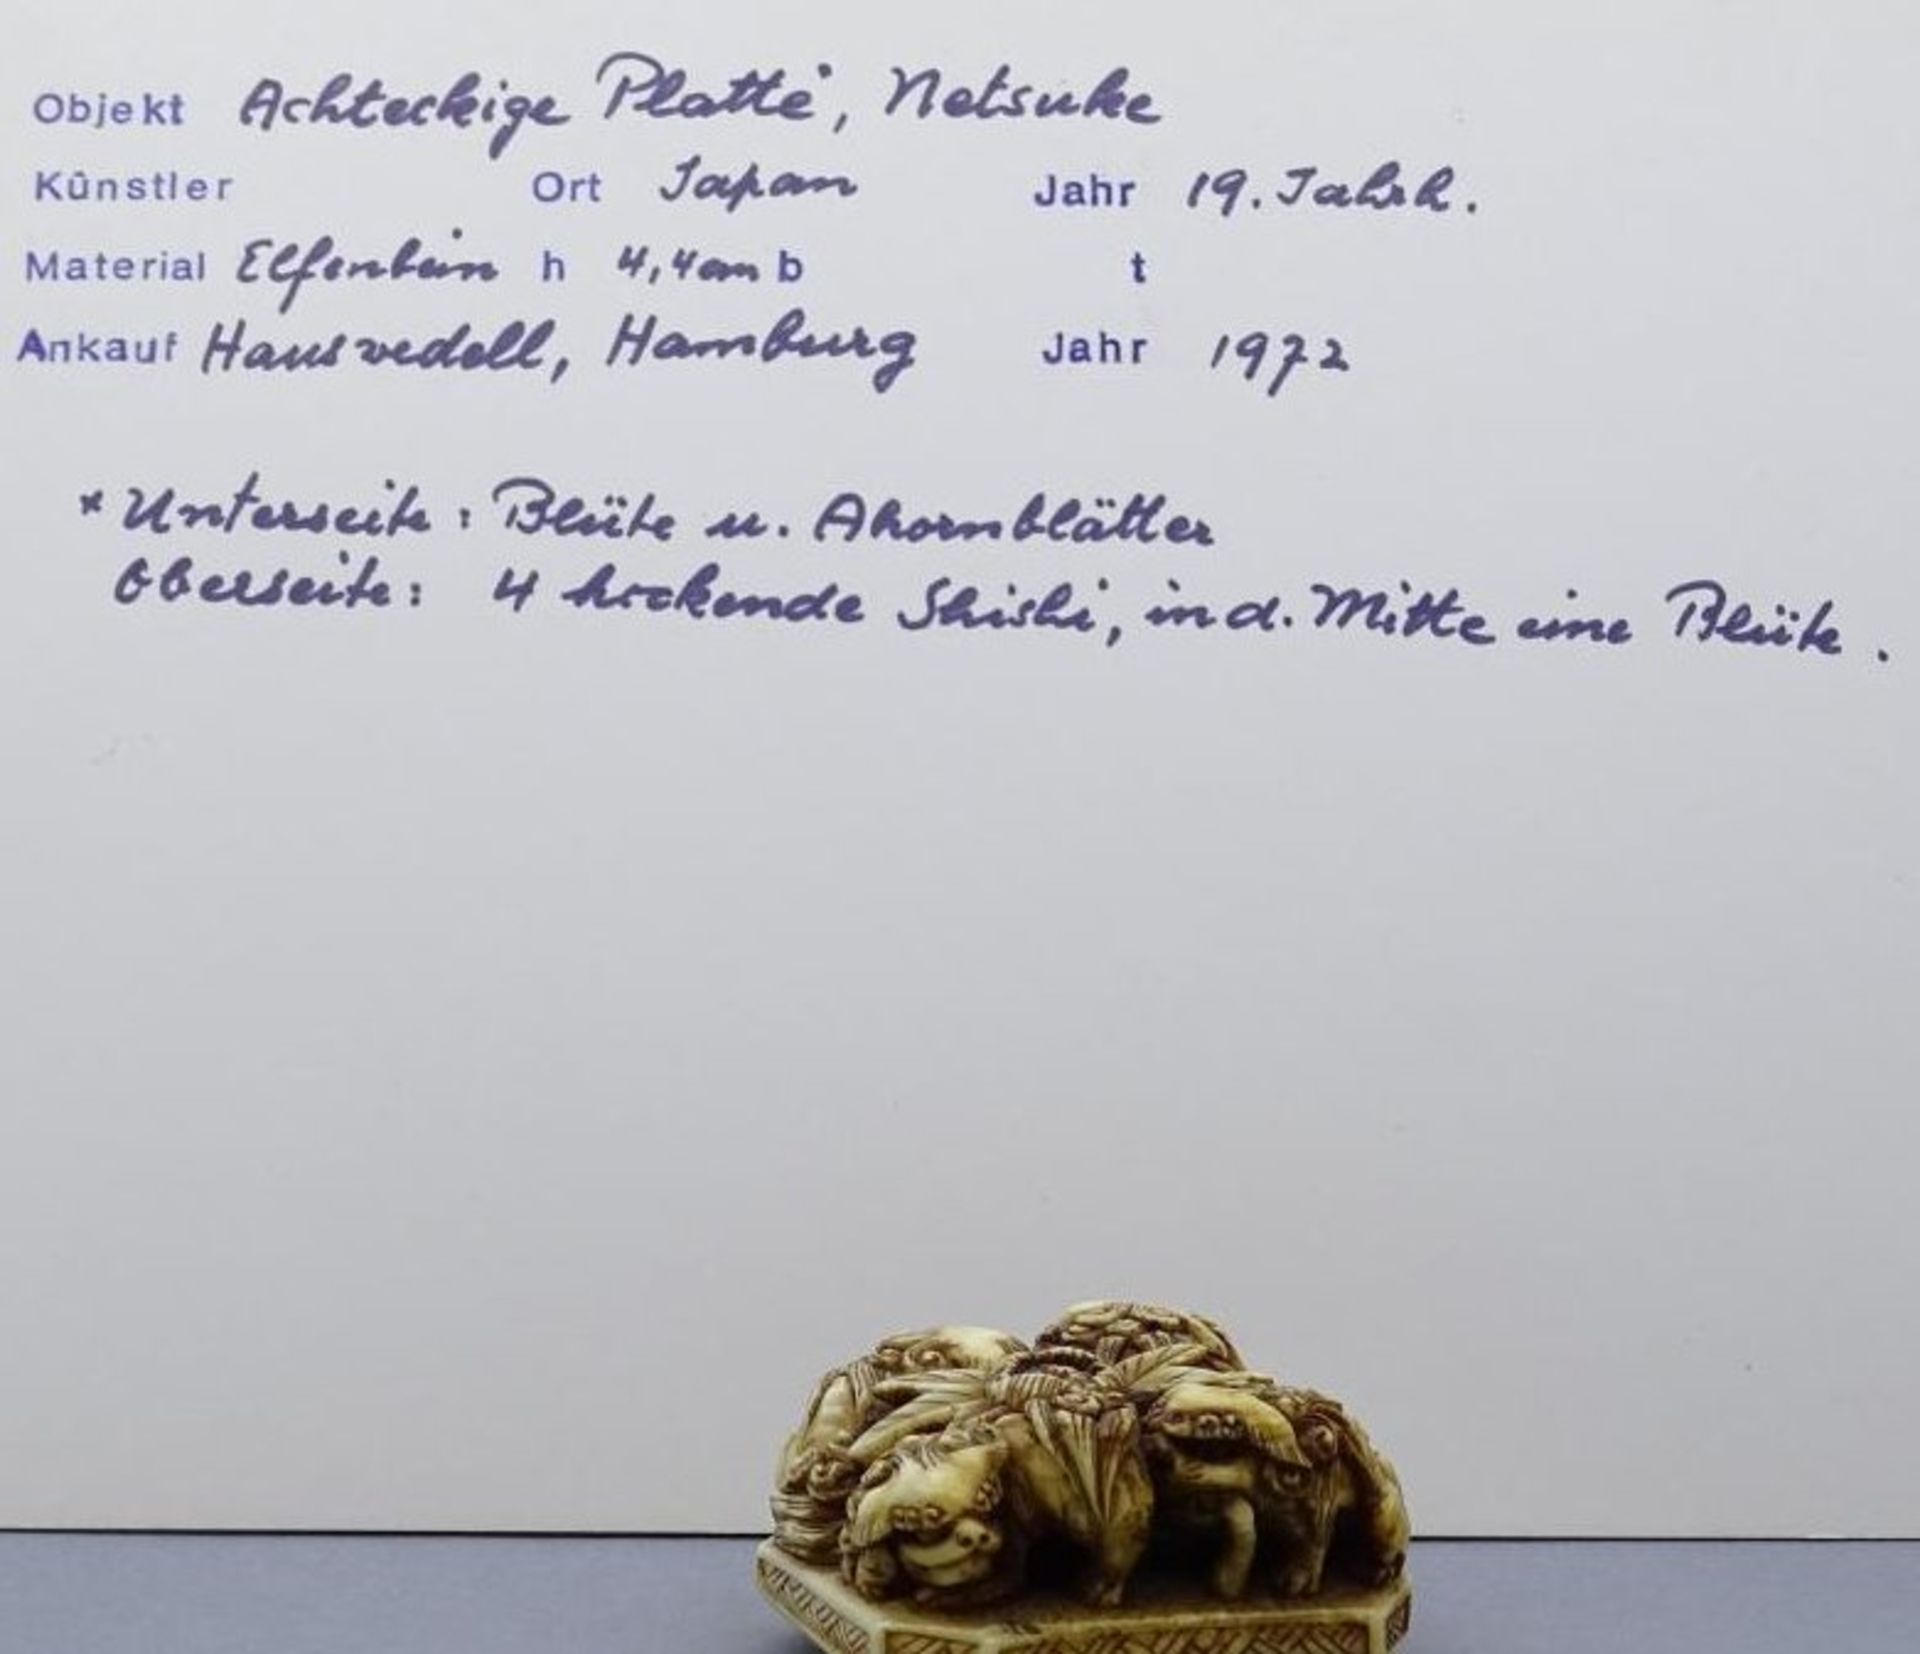 Objekt Achteckige Platte*, Netsuke
Künstler Ort Japan Jahr 19. Jahrh.
Material Elfenbein h 4,4cm b t
Ankauf Hauswedell, Hamburg Jahr 1972
* Unterseite: Blüte u. Ahornblätter
Oberseite: 4 hockende Shishi, in d. Mitte eine Blüte.